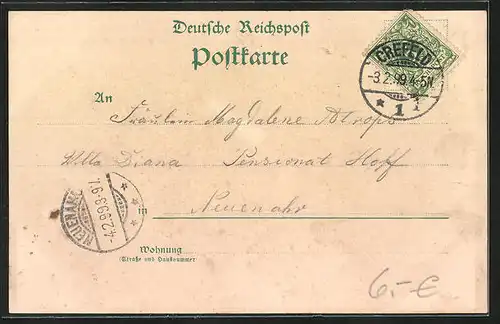 Deutsche Reichspost
Postkarte
CREFELD
-3.2.99.4-5N.
* 1 f
An
Fräulein Magdalene Atrops
Villa Diana Pensionat Hoff
in Neuenahr
NEUENAHR
-4.2.99.8-9.V.
Wohnung
(Straße und Hausnummer
6.-€